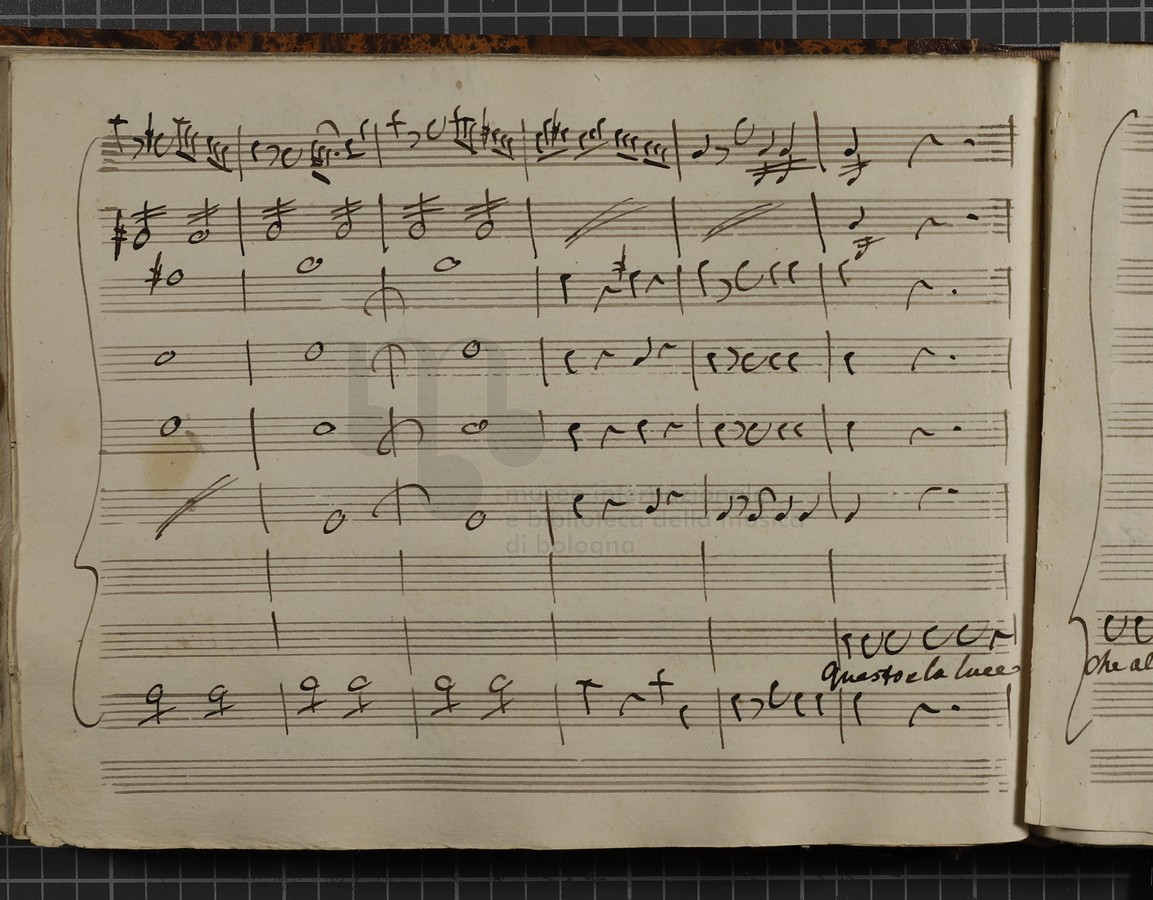 museo internazionale
e biblioteca della musica
di bologna
questo e la luce
che al